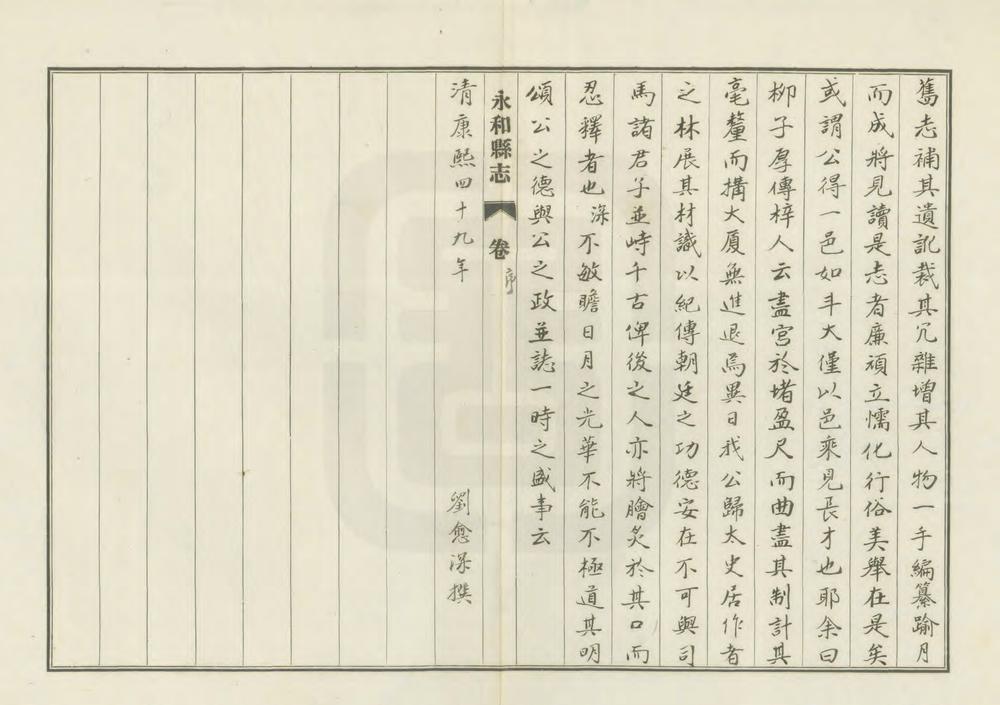 舊志補其遺訛裁其冗雜增其人物一手編纂踰月
而成將見讀是志者廉頑立懦化行俗美舉在是矣
或謂公得一邑如斗大僅以邑乘見長才也耶余曰
柳子厚傳梓人云畫宮於堵盈尺而曲盡其制計其
毫釐而搆大厦無進退焉異日我公歸太史居作者
之林展其材識以紀傳朝廷之功德安在不可與司
馬諸君子並峙千古俾後之人亦將膾炙於其口而
忍釋者也深不敏瞻日月之光華不能不極道其明
頌公之德與公之政並誌一時之盛事云
永和縣志 卷 序
清康熙四十九年 劉愈深撰